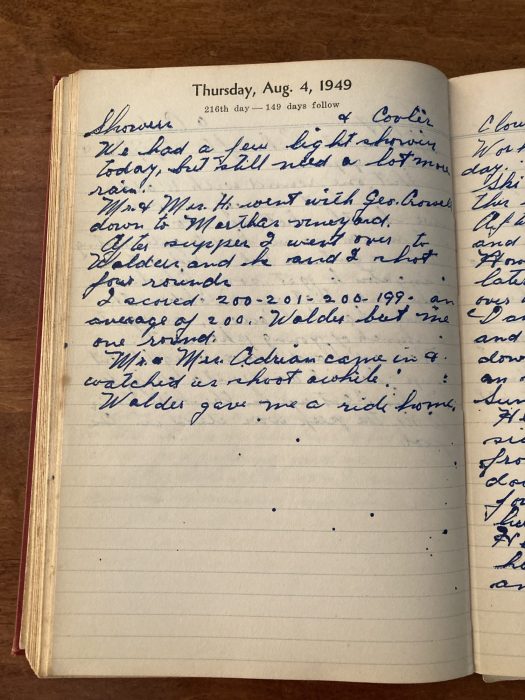 Thursday, Aug. 4, 1949
216th day — 149 days follow
Showers & Cooler
We had a few light showers
today, but still need a lot more
rain.
Mr. & Mrs. H. went with Geo. Crowell
down to Marthas vineyard.
After supper I went over to
Waldies and he and I shot
four rounds
I scored 200-201-200-199- an
average of 200. Waldie but me
one round.
Mr. & Mrs. Adrian came in &
watched us shoot awhile.
Waldie gave me a ride home.
Clou
Wor
day.
Shi
the
Aft
and
How
late
over
and
dow
an
Sun
He
sid
fro
dow
for
he
He
ho
an